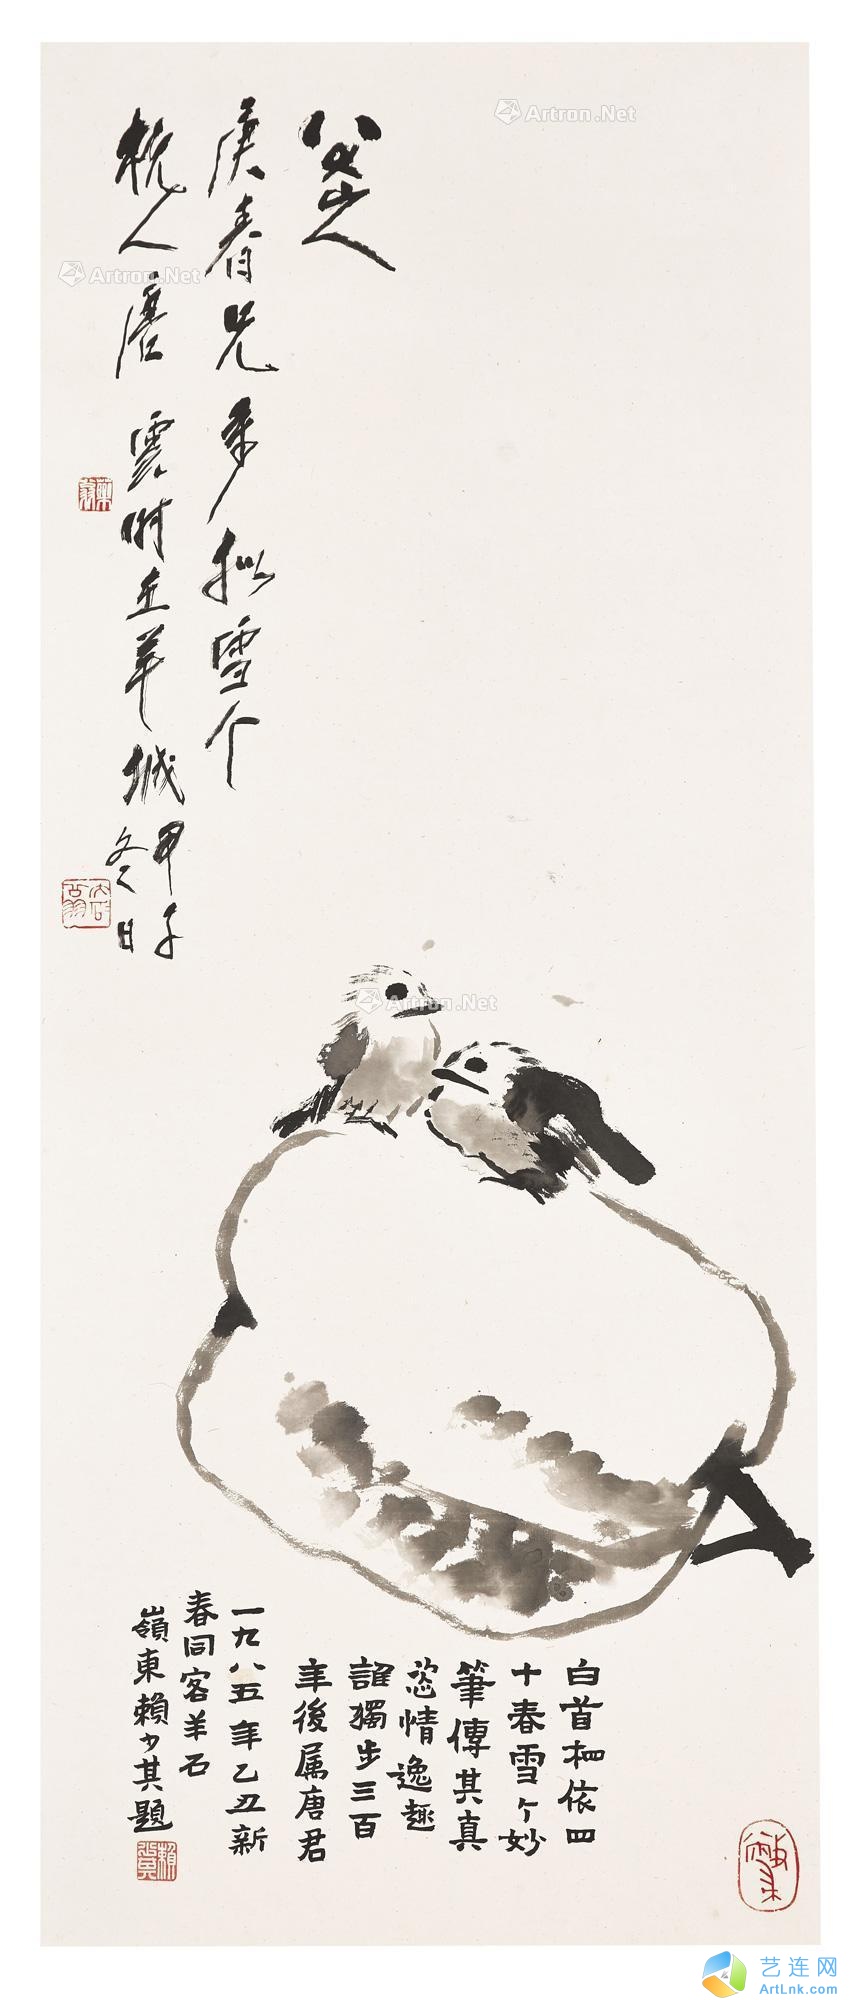 八大山人
庚春兄 拟雪个
杭人唐雲時在羊城
甲子
冬日
白首相依四
十春雪个妙
筆傳其真
恣情逸趣
誰獨步三百
年後属唐君
一九八五年乙丑新
春同客羊石
嶺東賴少其題
Artron.Net
Artron.Net
Artron.Net
艺连网
ArtLnk.com